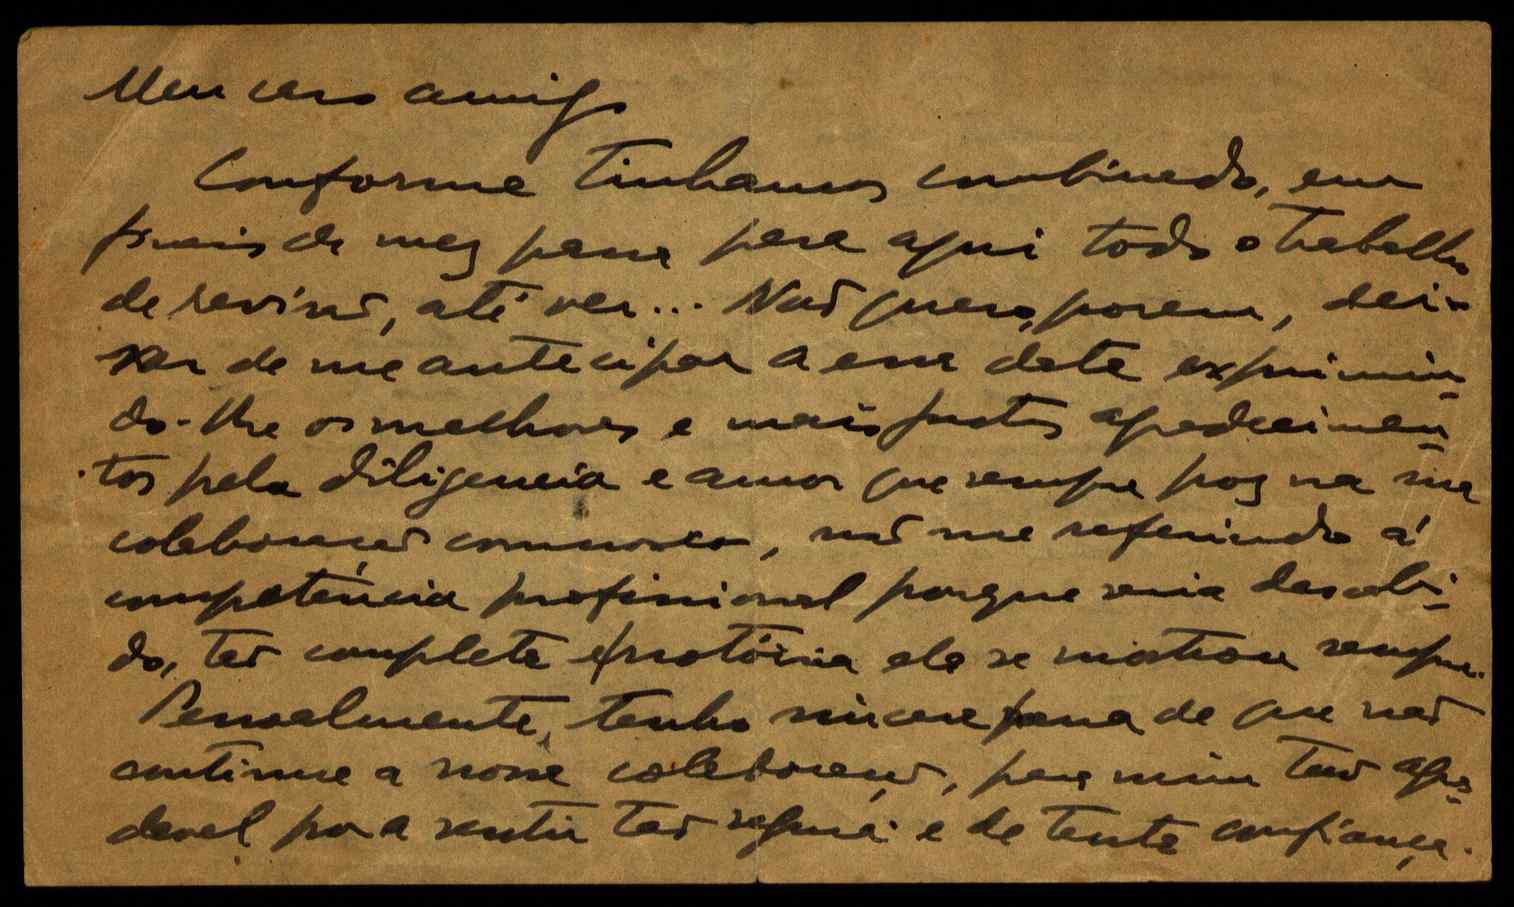 Meu caro amigo
Conforme tinhamos combinado, em
fins de mez passa para aqui todo o trabalho
de revisão, até ver... Não quero, porem, dei-
xar de me antecipar a essa data exprimin-
do-lhe os melhores e mais justos agradecimen-
tos pela diligencia e amor que sempre poz na sua
colaboração comnosco, não me referindo á
competência profissional porque seria descabi-
do, tão completa e notória ela se mostrou sempre.
Pessoalmente, tenho sincera pena de que não
continue a nossa colaboração, para mim tão agra-
davel por a sentir tão segura e de tanta confiança.